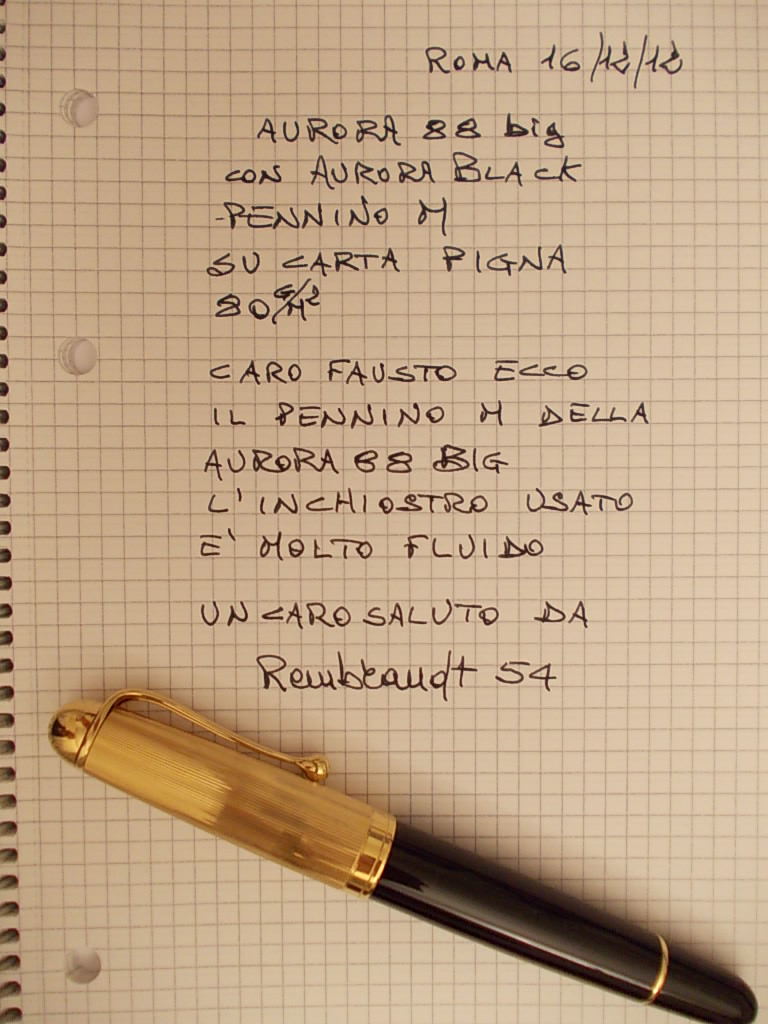 ROMA 16/12/12
AURORA 88 big
CON AURORA BLACK
-PENNINO M
SU CARTA PIGNA
80 G/M²
CARO FAUSTO ECCO
IL PENNINO M DELLA
AURORA 88 BIG
L'INCHIOSTRO USATO
E' MOLTO FLUIDO
UN CARO SALUTO DA
Rembrandt 54